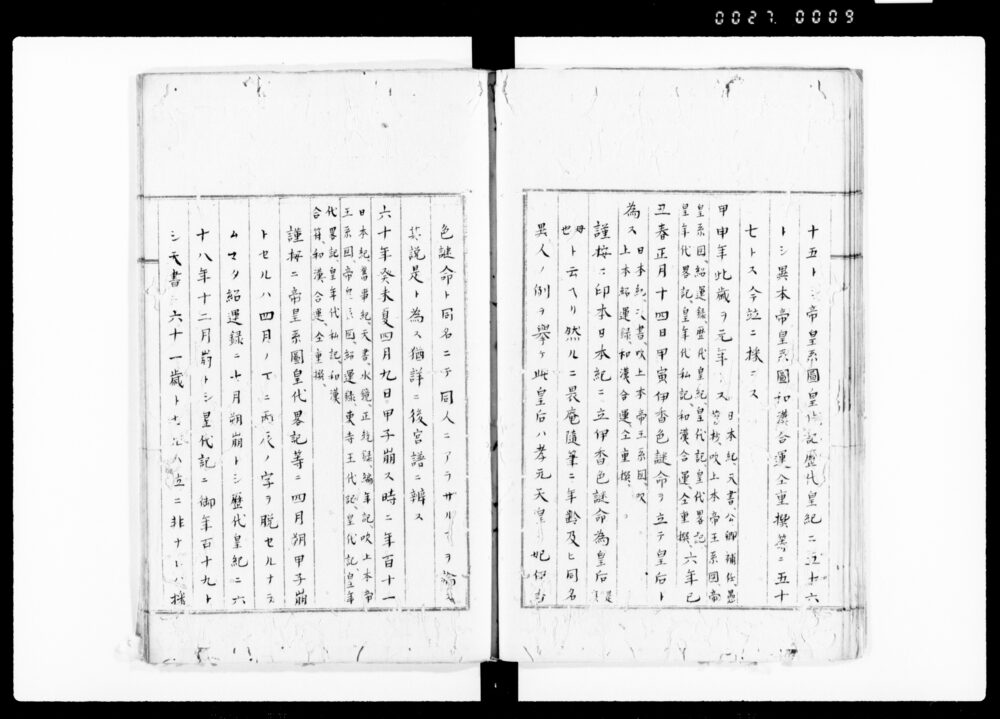 0027.0009
十五トシ帝皇系圖皇代記歴代皇紀ニ五十六
トシ異本帝皇系圖和漢合運全重撰等ニ五十
七トス今竝ニ據ニス
甲申年此歳ヲ元年トス
日本紀、天書、公卿補任、愚
管抄、吹上本帝王系圖、帝
皇系圖、紹運録、歴代皇紀、皇代記、皇代畧記、
皇年代畧記、皇年代私記、和漢合運、全重撰、
六年己
丑春正月十四日甲寅伊香色謎命ヲ立テ皇后ト
為ス
日本紀、天書、吹上本帝王系圖、吹
上本紹運録、和漢合運全重撰、
謹按ニ印本日本紀ニ立伊香色謎命為皇后
是
母
也
ト云ヘリ然ルニ畏庵隨筆ニ年齡及ヒ同名
異人ノ例ヲ擧ケ此皇后ハ孝元天皇ノ妃伊香
色謎命ト同名ニテ同人ニアラサルヿヲ論
其說是ト為ス猶詳ニ後宮譜ニ辨ス
六十年癸未夏四月九日甲子崩ス時ニ年百十一
日本紀、舊事紀、天書、水鏡、正統録、編年記、吹上本帝
王系圖、帝皇系圖、紹運録、東寺王代記、皇代記、皇年
代畧記、皇年代私記、和漢
合符、和漢合運、全重撰、
謹按ニ帝皇系圖皇代畧記等ニ四月朔甲子崩
トセルハ四月ノ下ニ丙辰ノ字ヲ脱セルナラ
ムマタ紹運録ニ十月朔崩トシ歴代皇紀ニ六
十八年十二月崩トシ皇代記ニ御年百十九ト
シ天書ニ六十一歳ト
竝ニ非ナ